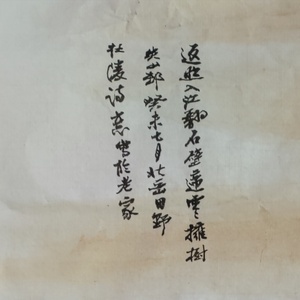 返照入江翻石壁歸雲擁樹
失山邨癸未七月北岳田野
杜陵詩意寫於老家